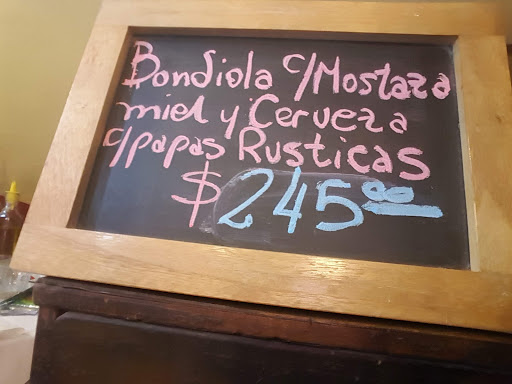 Bondiola c/Mostaza
miel y Cerveza
c/papas Rusticas
$245.00